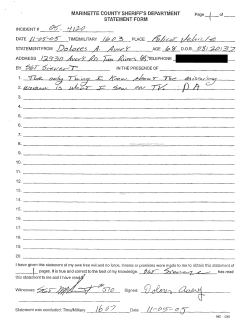 MARINETTE COUNTY SHERIFF'S DEPARTMENT
STATEMENT FORM
Page 1 of
INCIDENT # 05-4120
DATE 11-05-05 TIME/MILITARY 1603 PLACE Police Vehicle
STATEMENT FROM Dolores A. Avery AGE 68 D.O.B. 08/20/37
ADDRESS 12930 Avery Rd Two Rivers WI TELEPHONE
BY SGT IN THE PRESENCE OF
1. The only Thing I Know about The missing
2. woman is what I saw on TV. DA
3.
4.
5.
6.
7.
8.
9.
10.
11.
12.
13.
14.
15.
16.
17.
18.
19.
20.
I have given this statement of my own free will and no force, threats or promises were made to me to obtain this statement of
1 pages. It is true and correct to the best of my knowledge. SGT has read
this statement to me and I have read
Witnesses: SGT #570 Signed: Dolores Avery
Statement was concluded: Time/Military 1607 Date 11-05-05